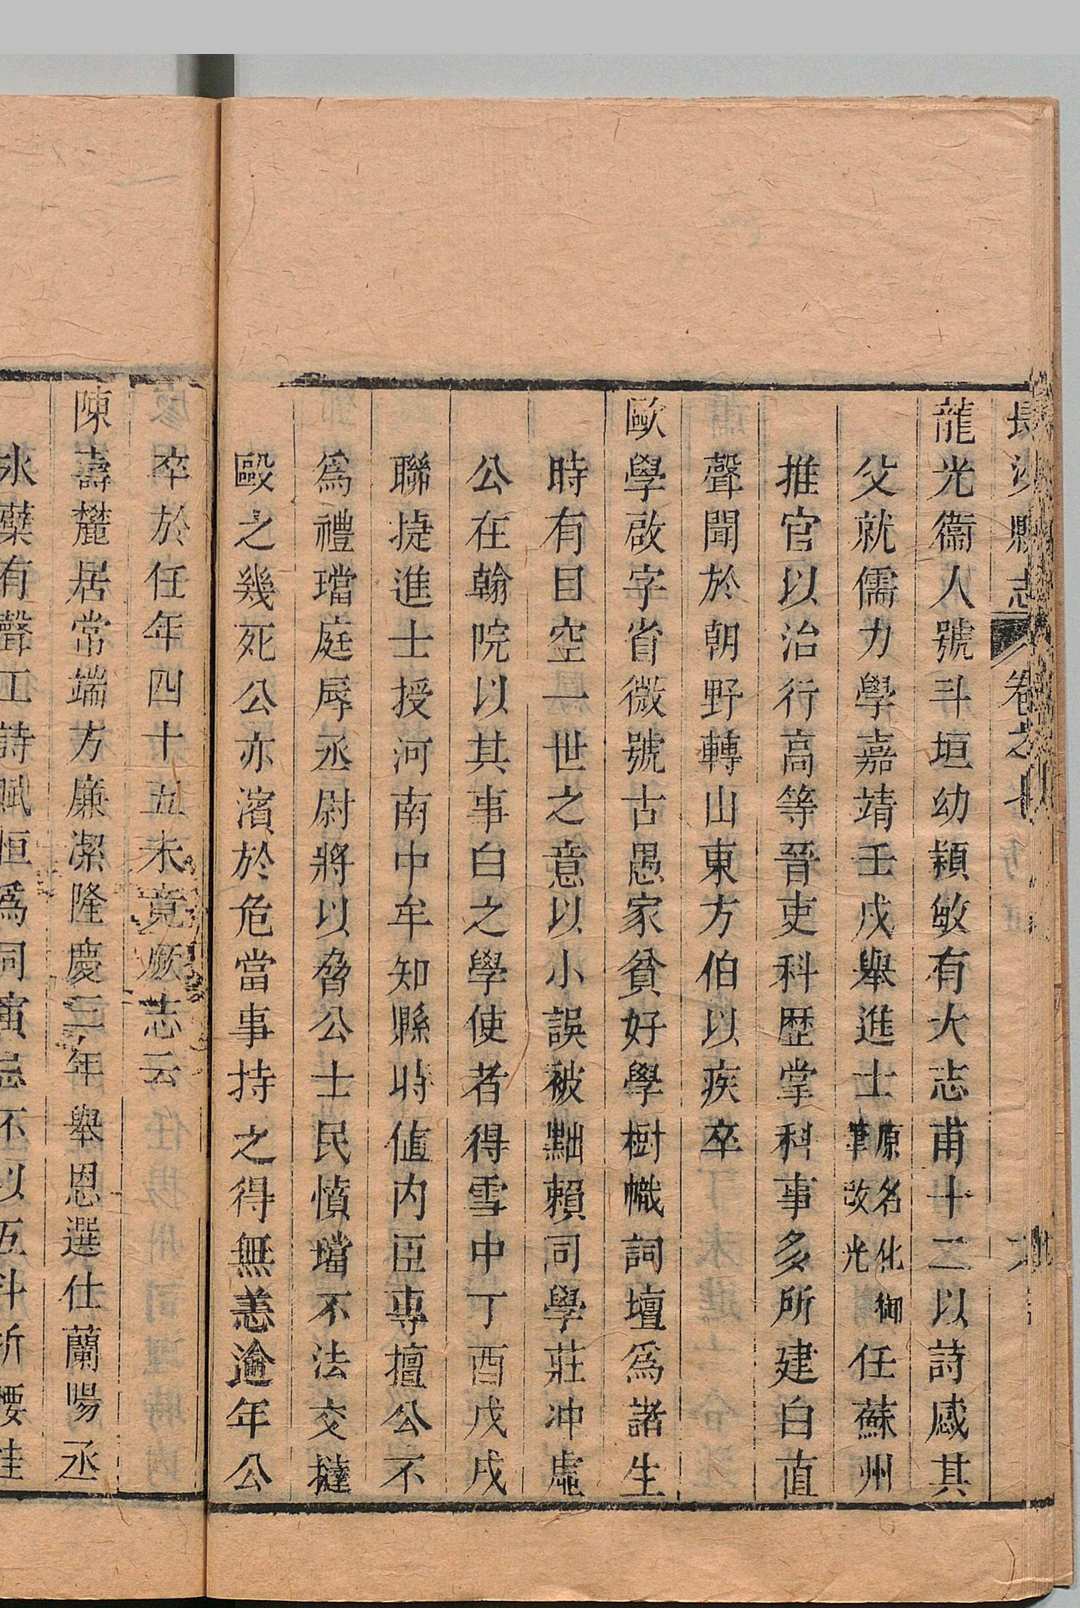 長沙縣志 卷之十
龍光衞人號斗垣幼穎敏有大志甫十二以詩感其
父就儒力學嘉靖壬戌舉進士原名化御筆改光任蘇州
推官以治行高等晉吏科歷掌科事多所建白直
聲聞於朝野轉山東方伯以疾卒
歐學啟字省微號古愚家貧好學樹幟詞壇為諸生
時有目空一世之意以小誤被黜賴司學莊冲虛
公在翰院以其事白之學使者得雪中丁酉戊戌
聯捷進士授河南中牟知縣時值內臣專擅公不
為禮璫庭辱丞尉將以脅公士民憤璫不法交撻
毆之幾死公亦濱於危當事持之得無恙逾年公
卒於任年四十五未竟厥志云
陳壽麓居常端方廉潔隆慶二年舉恩選仕蘭陽丞
氷蘗有聲工詩賦恒為同寅忌不以五斗折腰挂